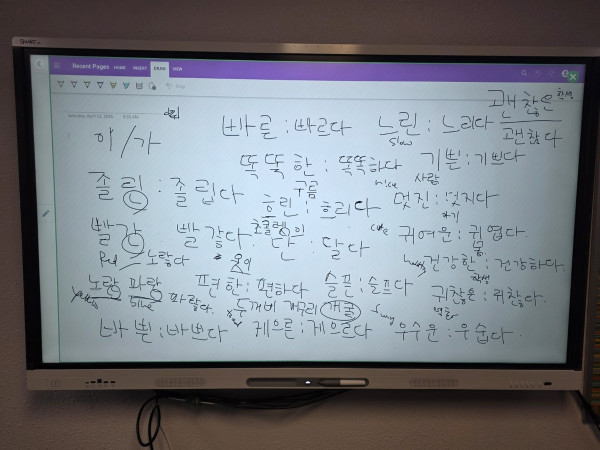 SMART
Recent Pages HOME INSERT DRAW VIEW
괜찮은 학생
이/가 바른 : 바르다 느린 : 느리다 괜찮다
slow
똑똑한 : 똑똑하다 기쁜 : 기쁘다
nice 사람
졸린 : 졸립다 구름
흐린 : 흐리다 멋진 : 멋지다
아기
빨간 빨갛다 초콜렛의 cute 귀여운 : 귀엽다.
단 : 달다 몸
Red 노랗다 건강한 : 건강하다.
노랑 파랑 편한 : 편하다 슬픈 : 슬프다 학생
귀찮은 : 귀찮다.
yellow blue 파랗다. 두꺼비 개구리 개굴
바쁜 : 바쁘다 게으른 : 게으르다 우수운 : 우습다